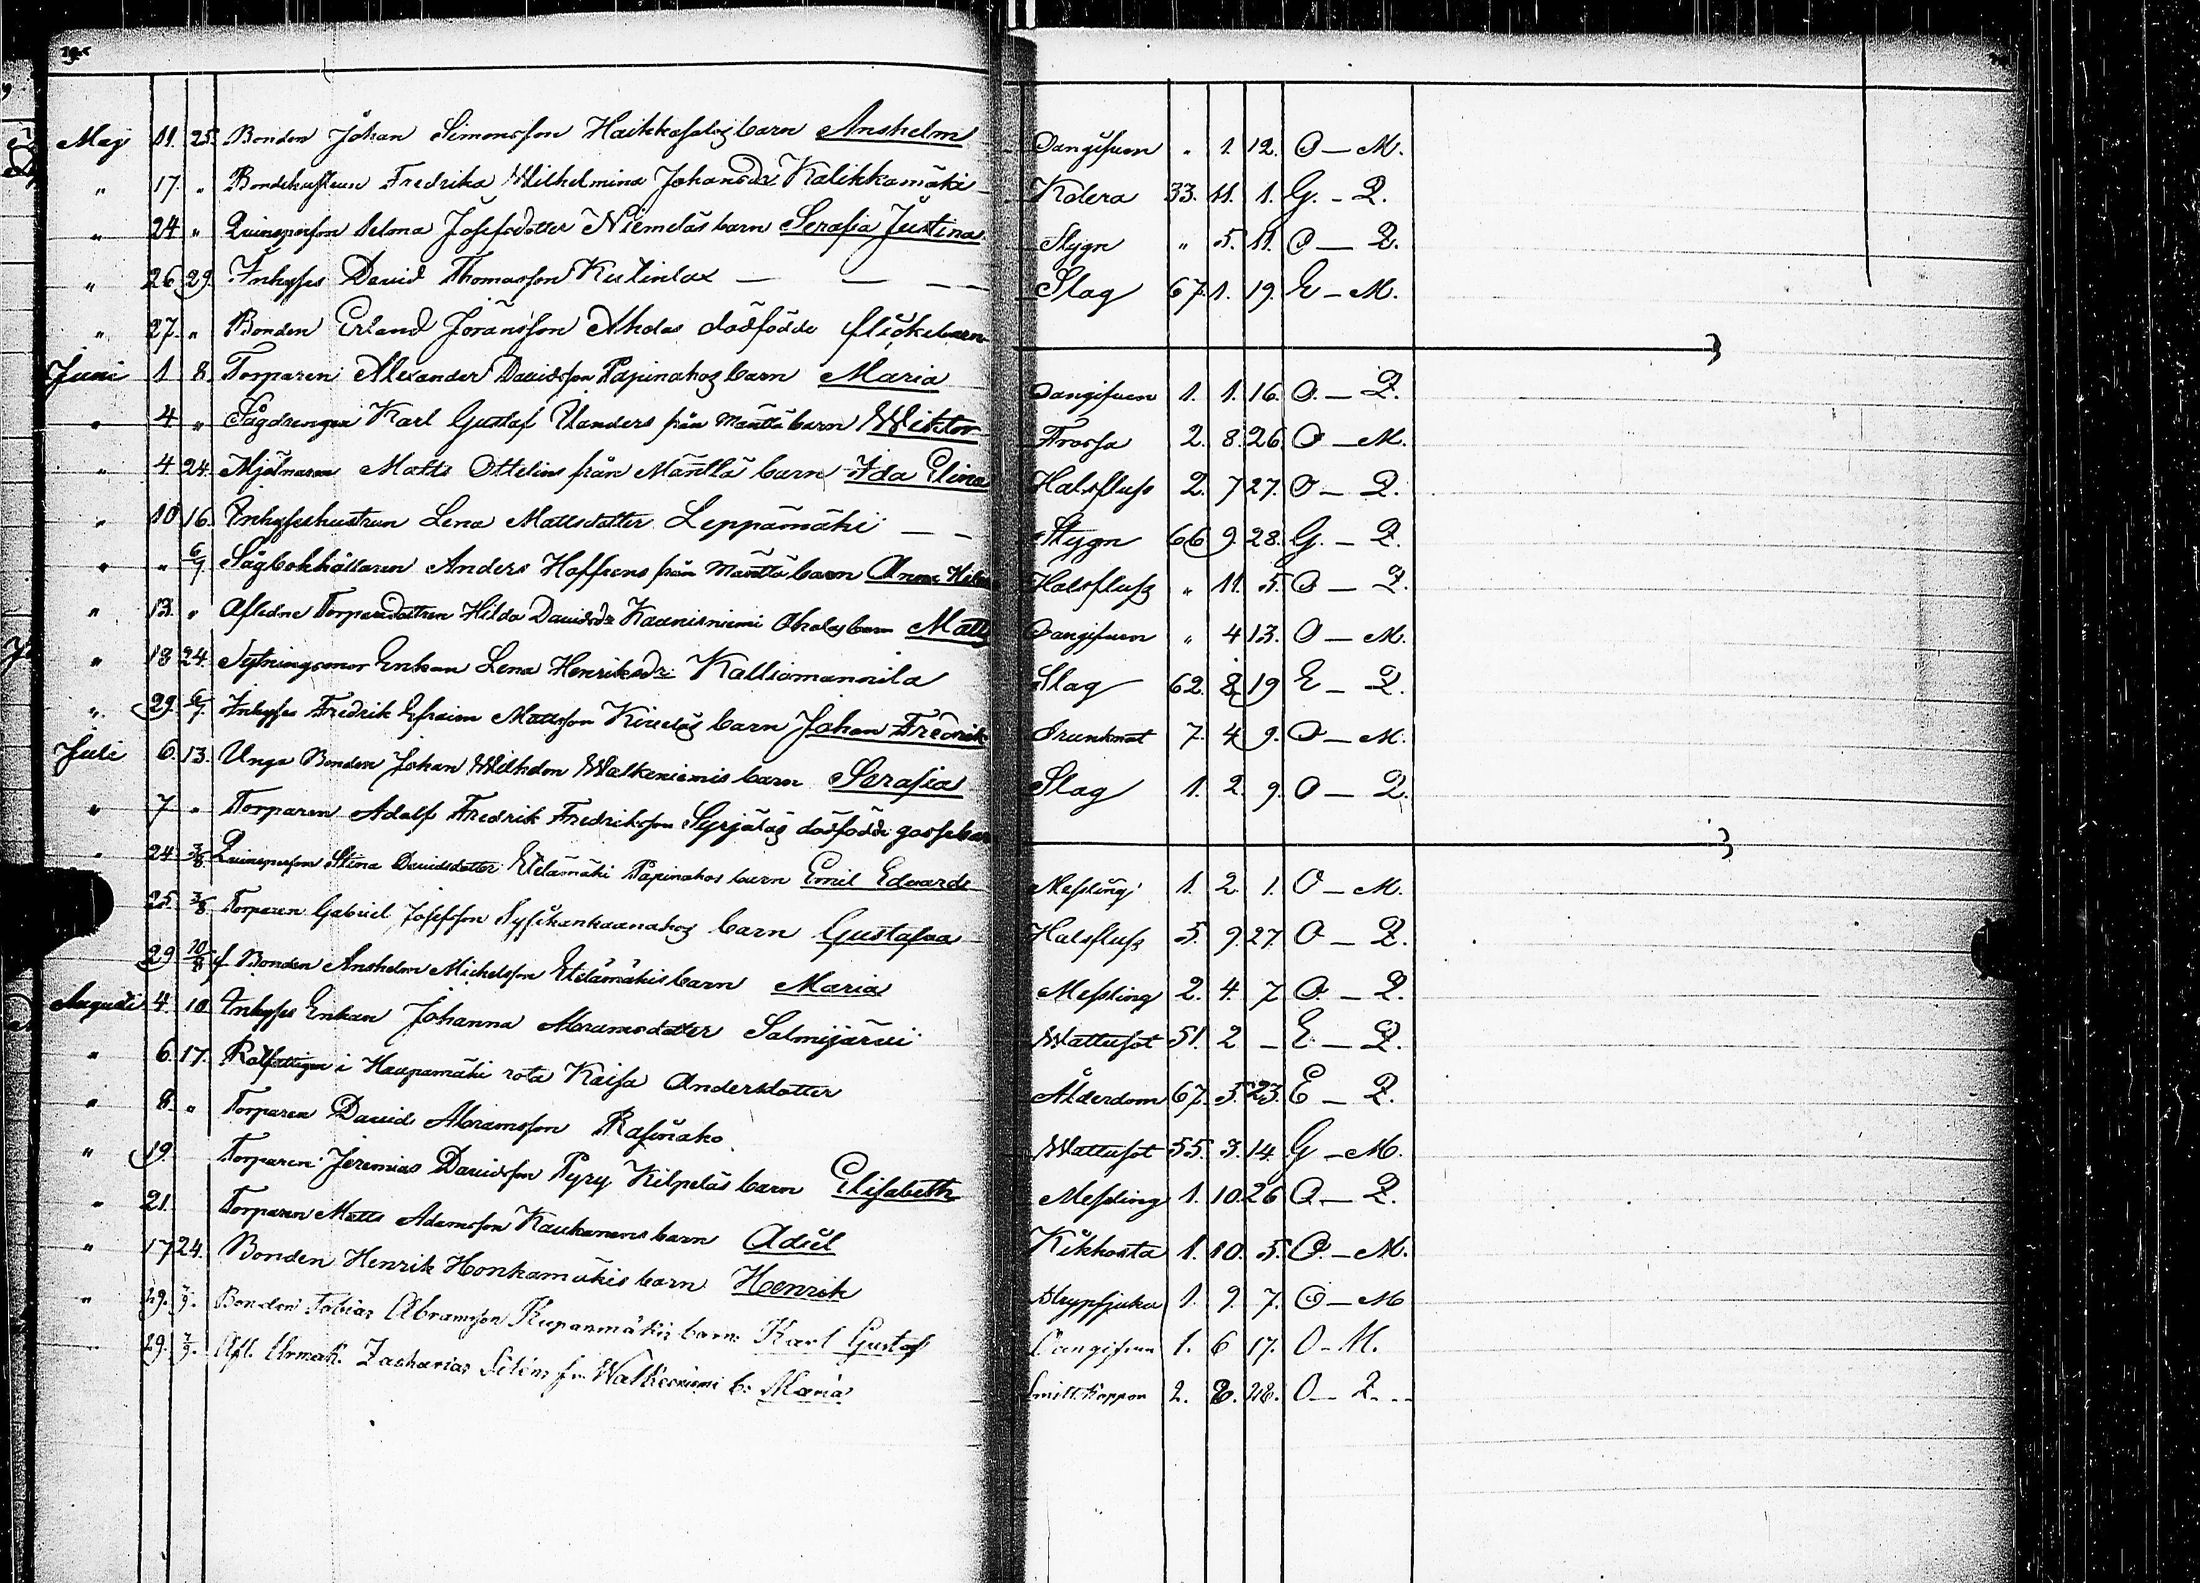 Maj 11. 25. Bonden Johan Simonsson Haikkasalos barn Anshelm Oangifven " 1. 12. O — M.
" 17. " Bondehustrun Fredrika Wilhelmina Johansdr Kalikkamäki — Kolera 33. 11. 1. G. — Q.
" 24 " Qvinsperson Selma Josefsdotter Niemeläs barn Serafia Justina. Stygn " 5. 11. O — Q.
" 26 29. Inhyses David Thomasson Kulinlax — — — Slag 67. 1. 19. E — M.
" 27. " Bonden Erland Joransson Aholas dödfödde flickebarn
Juni 1 8. Torparen Alexander Davidsson Papinahos barn Maria Oangifven 1. 1. 16. O. — Q.
" 4 " Sågdrengen Karl Gustaf Uanders från Mänttä barn Wiktor Frossa 2. 8. 26. O — M.
" 4 24. Mjölnaren Matts Ottelins från Mänttä barn Ida Elina Halsfluss 2. 7 27. O — Q.
" 10 16. Inhyseshustrun Lena Mattsdotter Leppämäki — — Stygn 66 9. 28. G. — Q.
" " 6/7 Sågbokhållaren Anders Hoffrens från Mänttä barn Anna Halsfluss " 11. 5. O — Q.
" 13. " Aflidne Torparedottren Hilda Davidsdr Kaunisniemi Aholas barn Matts Oangifven " 4 13. O — M.
" 18 24. Sytningsmor Enkan Lena Henriksdr Kalliomannila Slag 62. 8. 19 E — Q.
" 29. 6/7. Inhyses Fredrik Efraim Mattsson Kiveläs barn Johan Fredrik 7. 4 9. O — M.
Juli 6. 13. Unga Bonden Johan Wilhelm Walkeniemis barn Serafia Slag 1. 2. 9. O — Q.
" 7 " Torparen Adolf Fredrik Fredriksson Syrjäläs dödfödde gossebarn
" 24. 3/8 Qvinsperson Stina Davidsdotter Etelämäki Papinahos barn Emil Edvard Messling 1. 2 1. O — M.
25. 3/8 Torparen Gabriel Josefsson barn Gustafva Halsfluss 5. 9. 27. O — Q.
29 10/8 f. Bonden Anshelm Michelsson Etelämäkis barn Maria Messling 2. 4. 7 O. — Q.
Augusti 4. 10 Inhyses Enkan Johanna Abramsdotter Salmijärvi Wattusot 51. 2 — E. — Q.
" 6. 17. Rotfattigen i Haapamäki rota Kaisa Andersdotter Ålderdom 67. 5. 23. E — Q.
" 8. " Torparen David Abramsson Rasinaho Wattusot 55. 3. 14. G — M.
" 19. Torparen Jeremias Davidsson Pyry Kilpeläs barn Elisabeth Messling 1. 10. 26 O — Q.
" 21. Torparen Matts Adamsson Kaukanens barn Adiel Kikhosta 1. 10. 5. O. — M.
" 17 24. Bonden Henrik Honkamäkis barn Henrik Strypsjuka 1. 9. 7. O — M
" 29. 7/9. Bonden Tobias Abramsson barn Karl Gustaf Oangifven 1. 6 17. O — M.
29. 7/9. Afl. Urmak. Zacharias Siléns fr. Walkeniemi b. Maria Smittkoppor 2. 8. 28. O — Q.